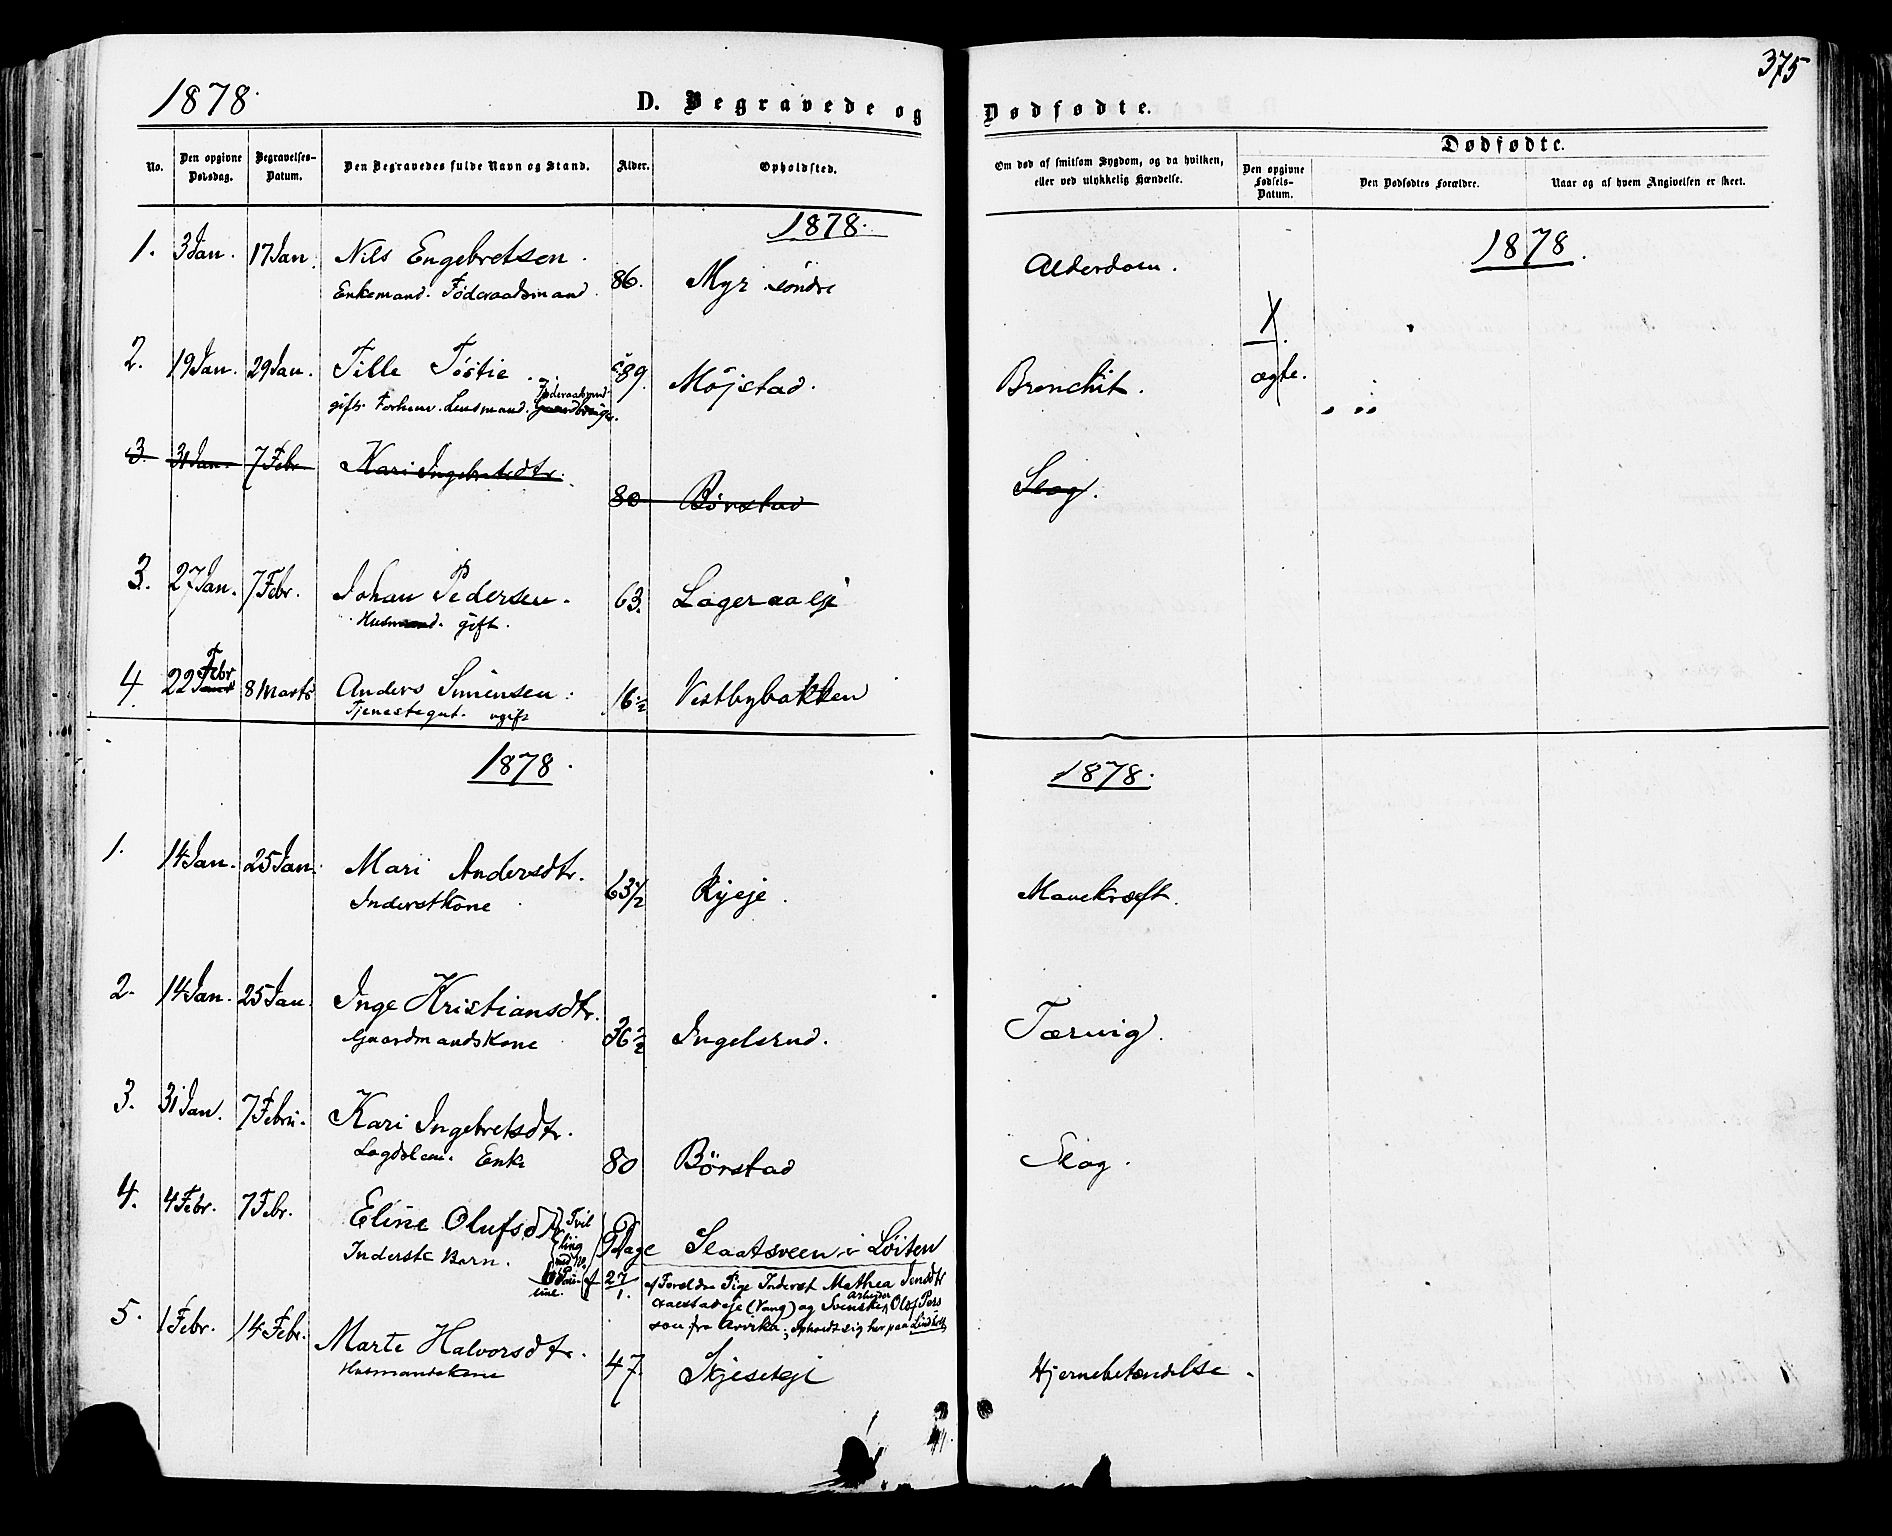 1878.
D. Begravede og
Dødfødte.
375
No.
Den opgivne Dødsdag.
Begravelses-Datum.
Den Begravedes fulde Navn og Stand.
Alder.
Opholdsted.
Om død af smitsom Sygdom, og da hvilken,
eller ved ulykkelig Hændelse.
Dødfødte.
Den opgivne Fødsels-Datum.
Den Dødfødtes Forældre.
Naar og af hvem Angivelsen er skeet.
1878.
1878.
1. 3 Jan. 17 Jan. Nils Engebretsen. 86. Myr søndre Alderdom.
Enkemand. Føderaadsmand.
2. 19 Jan. 29 Jan. Tille Tøstie 89. Møjstad. Bronchit. ægte.
Føderaadsmd
gift. Forhenv. Lensmand. Gaardbruger.
3. 31 Jan. 7 Febr Kari Ingebretsdtr. 80 Børstad Slag.
3. 27 Jan. 7 Febr. Johan Pedersen. 63. Lageraaeje
Husmand. gift.
Febr
4. 22 8 Marts Anders Simensen. 16 1/2 Vestbybakken
Tjenestegut. ugift
1878.
1878.
1. 14 Jan. 25 Jan. Mari Andersdtr. 63 1/2 Ryeje. Mavekræft.
Inderstkone
2. 14 Jan. 25 Jan. Inge Kristiansdtr. 36 1/2 Ingelsrud. Tærrig.
Gaardmandskone
3. 31 Jan. 7 Febr. Kari Ingebretsdtr. 80 Børstad Slag.
Lagdslem. Enke
4. 4 Febr. 7 Febr. Eline Olufsdtr Tvilling med No 6 Dage Slaatsveen i Løiten
Inderste Barn. f 27/1.
af Foreldre Pige Inderst Mathea Jensdtr
(Vang) og Svenske Arbeider Olof Persson fra Arvika; opholdt sig her paa
5. 1 Febr. 14 Febr. Marte Halvorsdtr. 47. Skjeseteje Hjernebetændelse.
Husmandskone